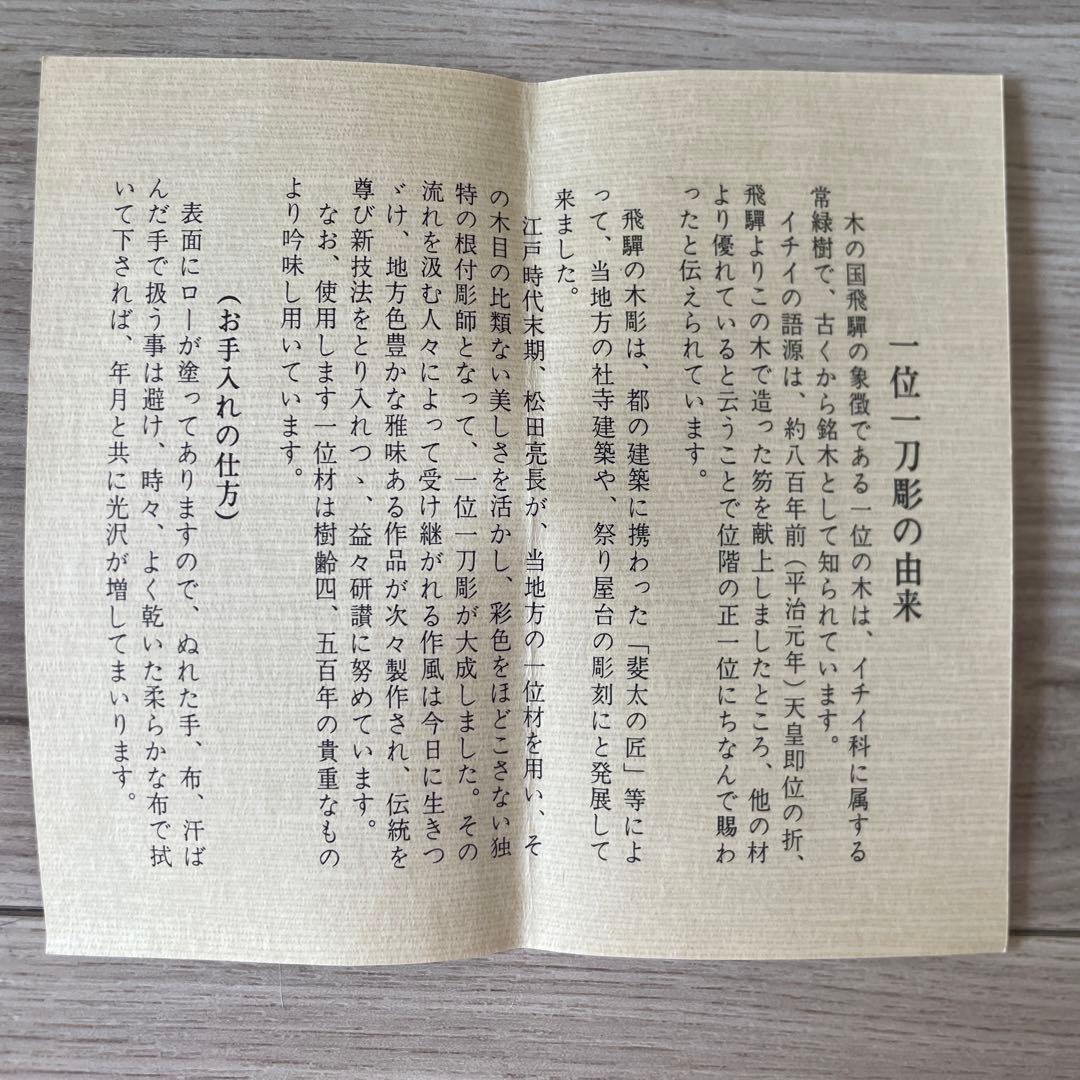 一位一刀彫の由来
木の国飛驒の象徴である一位の木は、イチイ科に属する
常緑樹で、古くから銘木として知られています。
イチイの語源は、約八百年前(平治元年)天皇即位の折、
飛驒よりこの木で造った笏を献上しましたところ、他の材
より優れていると云うことで位階の正一位にちなんで賜わ
ったと伝えられています。
飛驒の木彫は、都の建築に携わった「斐太の匠」等によ
って、当地方の社寺建築や、祭り屋台の彫刻にと発展して
来ました。
江戸時代末期、松田亮長が、当地方の一位材を用い、そ
の木目の比類ない美しさを活かし、彩色をほどこさない独
特の根付彫師となって、一位一刀彫が大成しました。その
流れを汲む人々によって受け継がれる作風は今日に生きつ
ゞけ、地方色豊かな雅味ある作品が次々製作され、伝統を
尊び新技法をとり入れつゝ、益々研讃に努めています。
なお、使用します一位材は樹齢四、五百年の貴重なもの
より吟味し用いています。
(お手入れの仕方)
表面にローが塗ってありますので、ぬれた手、布、汗ば
んだ手で扱う事は避け、時々、よく乾いた柔らかな布で拭
いて下されば、年月と共に光沢が増してまいります。